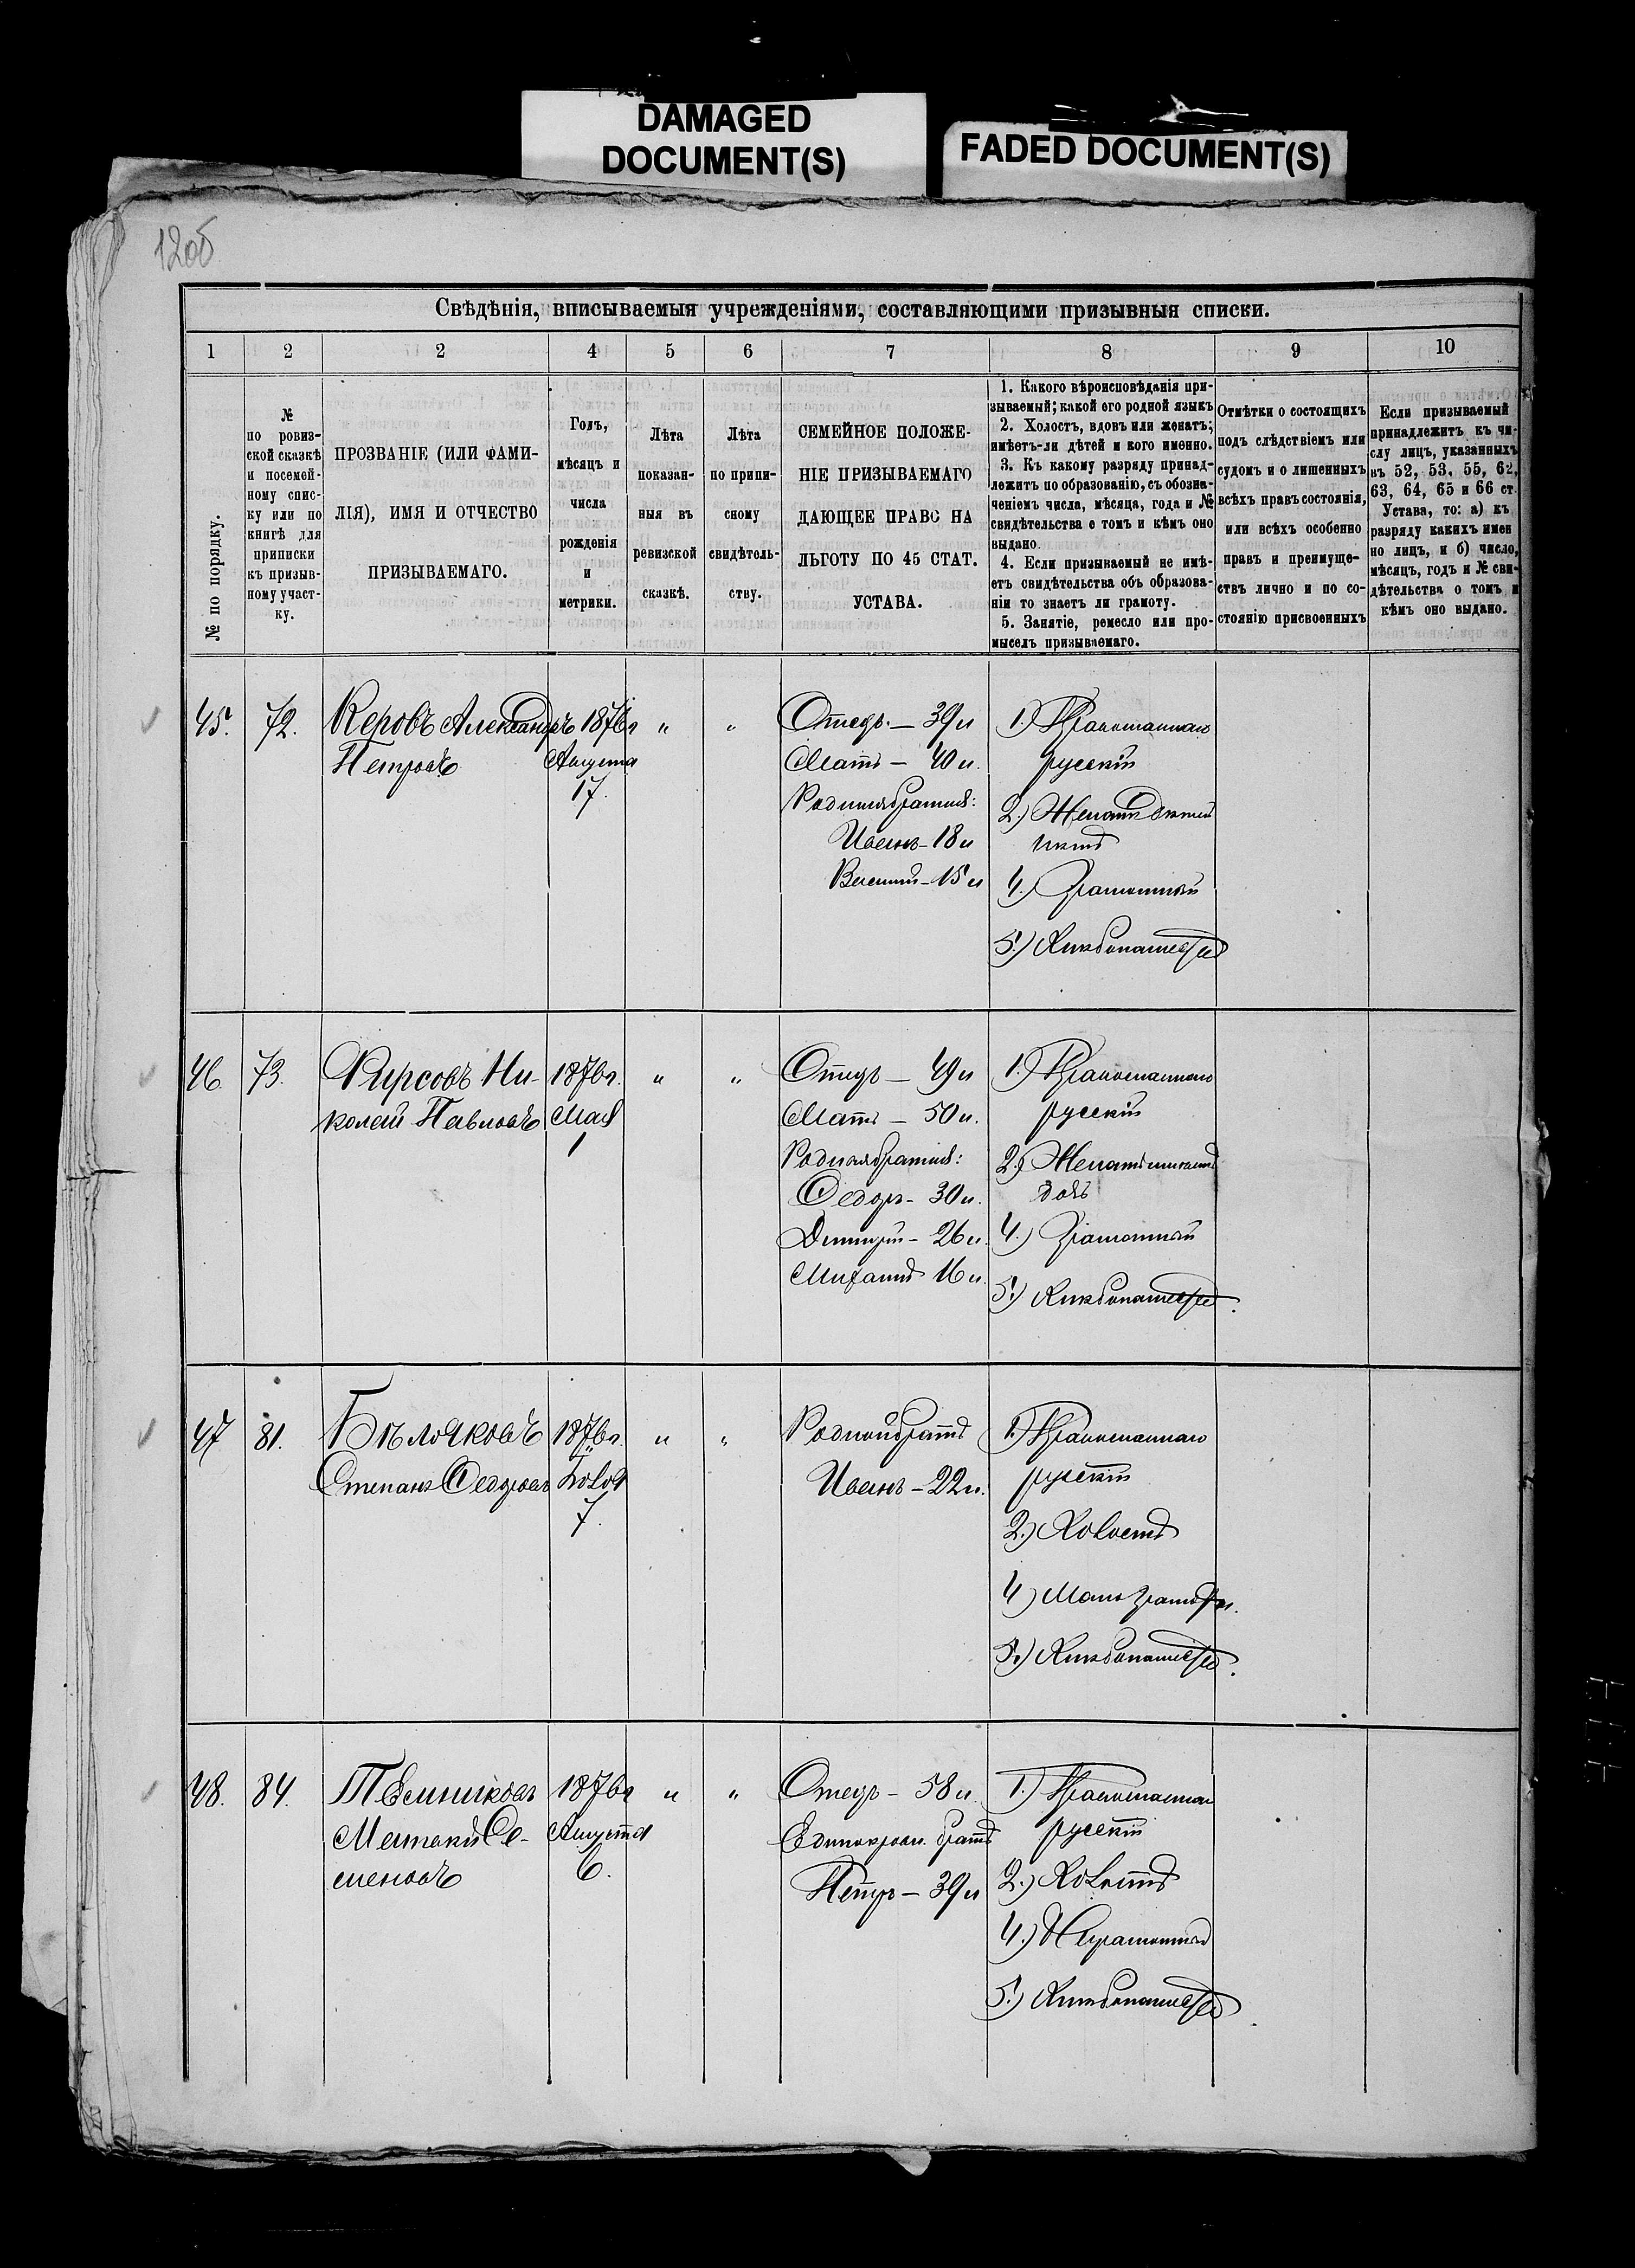 DAMAGED
DOCUMENT(S)
FADED DOCUMENT(S)
120б
Свѣдѣнія, вписываемыя учрежденіями, составляющими призывныя списки.
1 2 2 4 5 6 7 8 9 10
№ по порядку.
№
по ровиз-
ской сказкѣ
и посемей-
ному спис-
ку или по
книгѣ для
приписки
къ призыв-
ному участ-
ку.
ПРОЗВАНІЕ (ИЛИ ФАМИ-
ЛІЯ), ИМЯ И ОТЧЕСТВО
ПРИЗЫВАЕМАГО.
Годъ,
мѣсяцъ и
числа
рожденія
и
метрики.
Лѣта
показан-
ныя въ
ревизской
сказкѣ.
Лѣта
по припи-
сному
свидѣтель-
ству.
СЕМЕЙНОЕ ПОЛОЖЕ-
НІЕ ПРИЗЫВАЕМАГО
ДАЮЩЕЕ ПРАВО НА
ЛЬГОТУ ПО 45 СТАТ.
УСТАВА.
1. Какого вѣроисповѣданія при-
зываемый; какой его родной языкъ
2. Холостъ, вдовъ или женатъ;
имѣетъ-ли дѣтей и кого именно.
3. Къ какому разряду принад-
лежитъ по образованію, съ обозна-
ченіемъ числа, мѣсяца, года и №
свидѣтельства о томъ и кѣмъ оно
выдано.
4. Если призываемый не имѣ-
етъ свидѣтельства объ образова-
ніи то знаетъ ли грамоту.
5. Занятіе, ремесло или про-
мыселъ призываемаго.
Отмѣтки о состоящихъ
подъ слѣдствіемъ или
судомъ и о лишенныхъ
всѣхъ правъ состоянія,
или всѣхъ особенно
правъ и преимуще-
ствъ лично и по со-
стоянію присвоенныхъ
Если призываемый
принадлежитъ къ чи-
слу лицъ, указанныхъ
въ 52, 53, 55, 62,
63, 64, 65 и 66 ст.
Устава, то: а) къ
разряду какихъ имен
но лицъ, и б) число,
мѣсяцъ, годъ и № сви-
дѣтельства о томъ и
кѣмъ оно выдано.
45. 72.
Керовъ Александръ
Петровъ
1876г
Августа
17.
" "
Отецъ. – 39 л
Мать – 40 л.
Родные братья:
Иванъ – 18 л
Василій – 15 л
1.) Православнаго
русскій
2.) Женатъ дѣтей
нѣтъ
4.) Грамотный
5.) Хлѣбопашество
46. 73.
Фирсовъ Ни-
колай Павловъ
1876г.
Мая
1
" "
Отецъ – 49 л
Мать – 50 л.
Родные братья:
Федоръ – 30 л.
Дмитрій – 26 л.
Михаилъ 16 л.
1.) Православнаго
русскій
2.) Женатъ
4.) Грамотный
5.) Хлѣбопашество.
47 81.
Бѣляковъ
Степанъ Федоровъ
1876г.
7.
" "
Родной братъ
Иванъ – 22 л.
1.) Православнаго
русскій
2.) Холостъ
4) Мало грамотн.
5.) Хлѣбопашество.
48. 84.
Темниковъ
Се-
меновъ
1876г
Августа
6.
" "
Отецъ – 58 л.
Единокровн. братъ
Петръ – 39 л
1.) Православнаго
русскій
2.) Холостъ
4.) Неграмотный
5.) Хлѣбопашество.